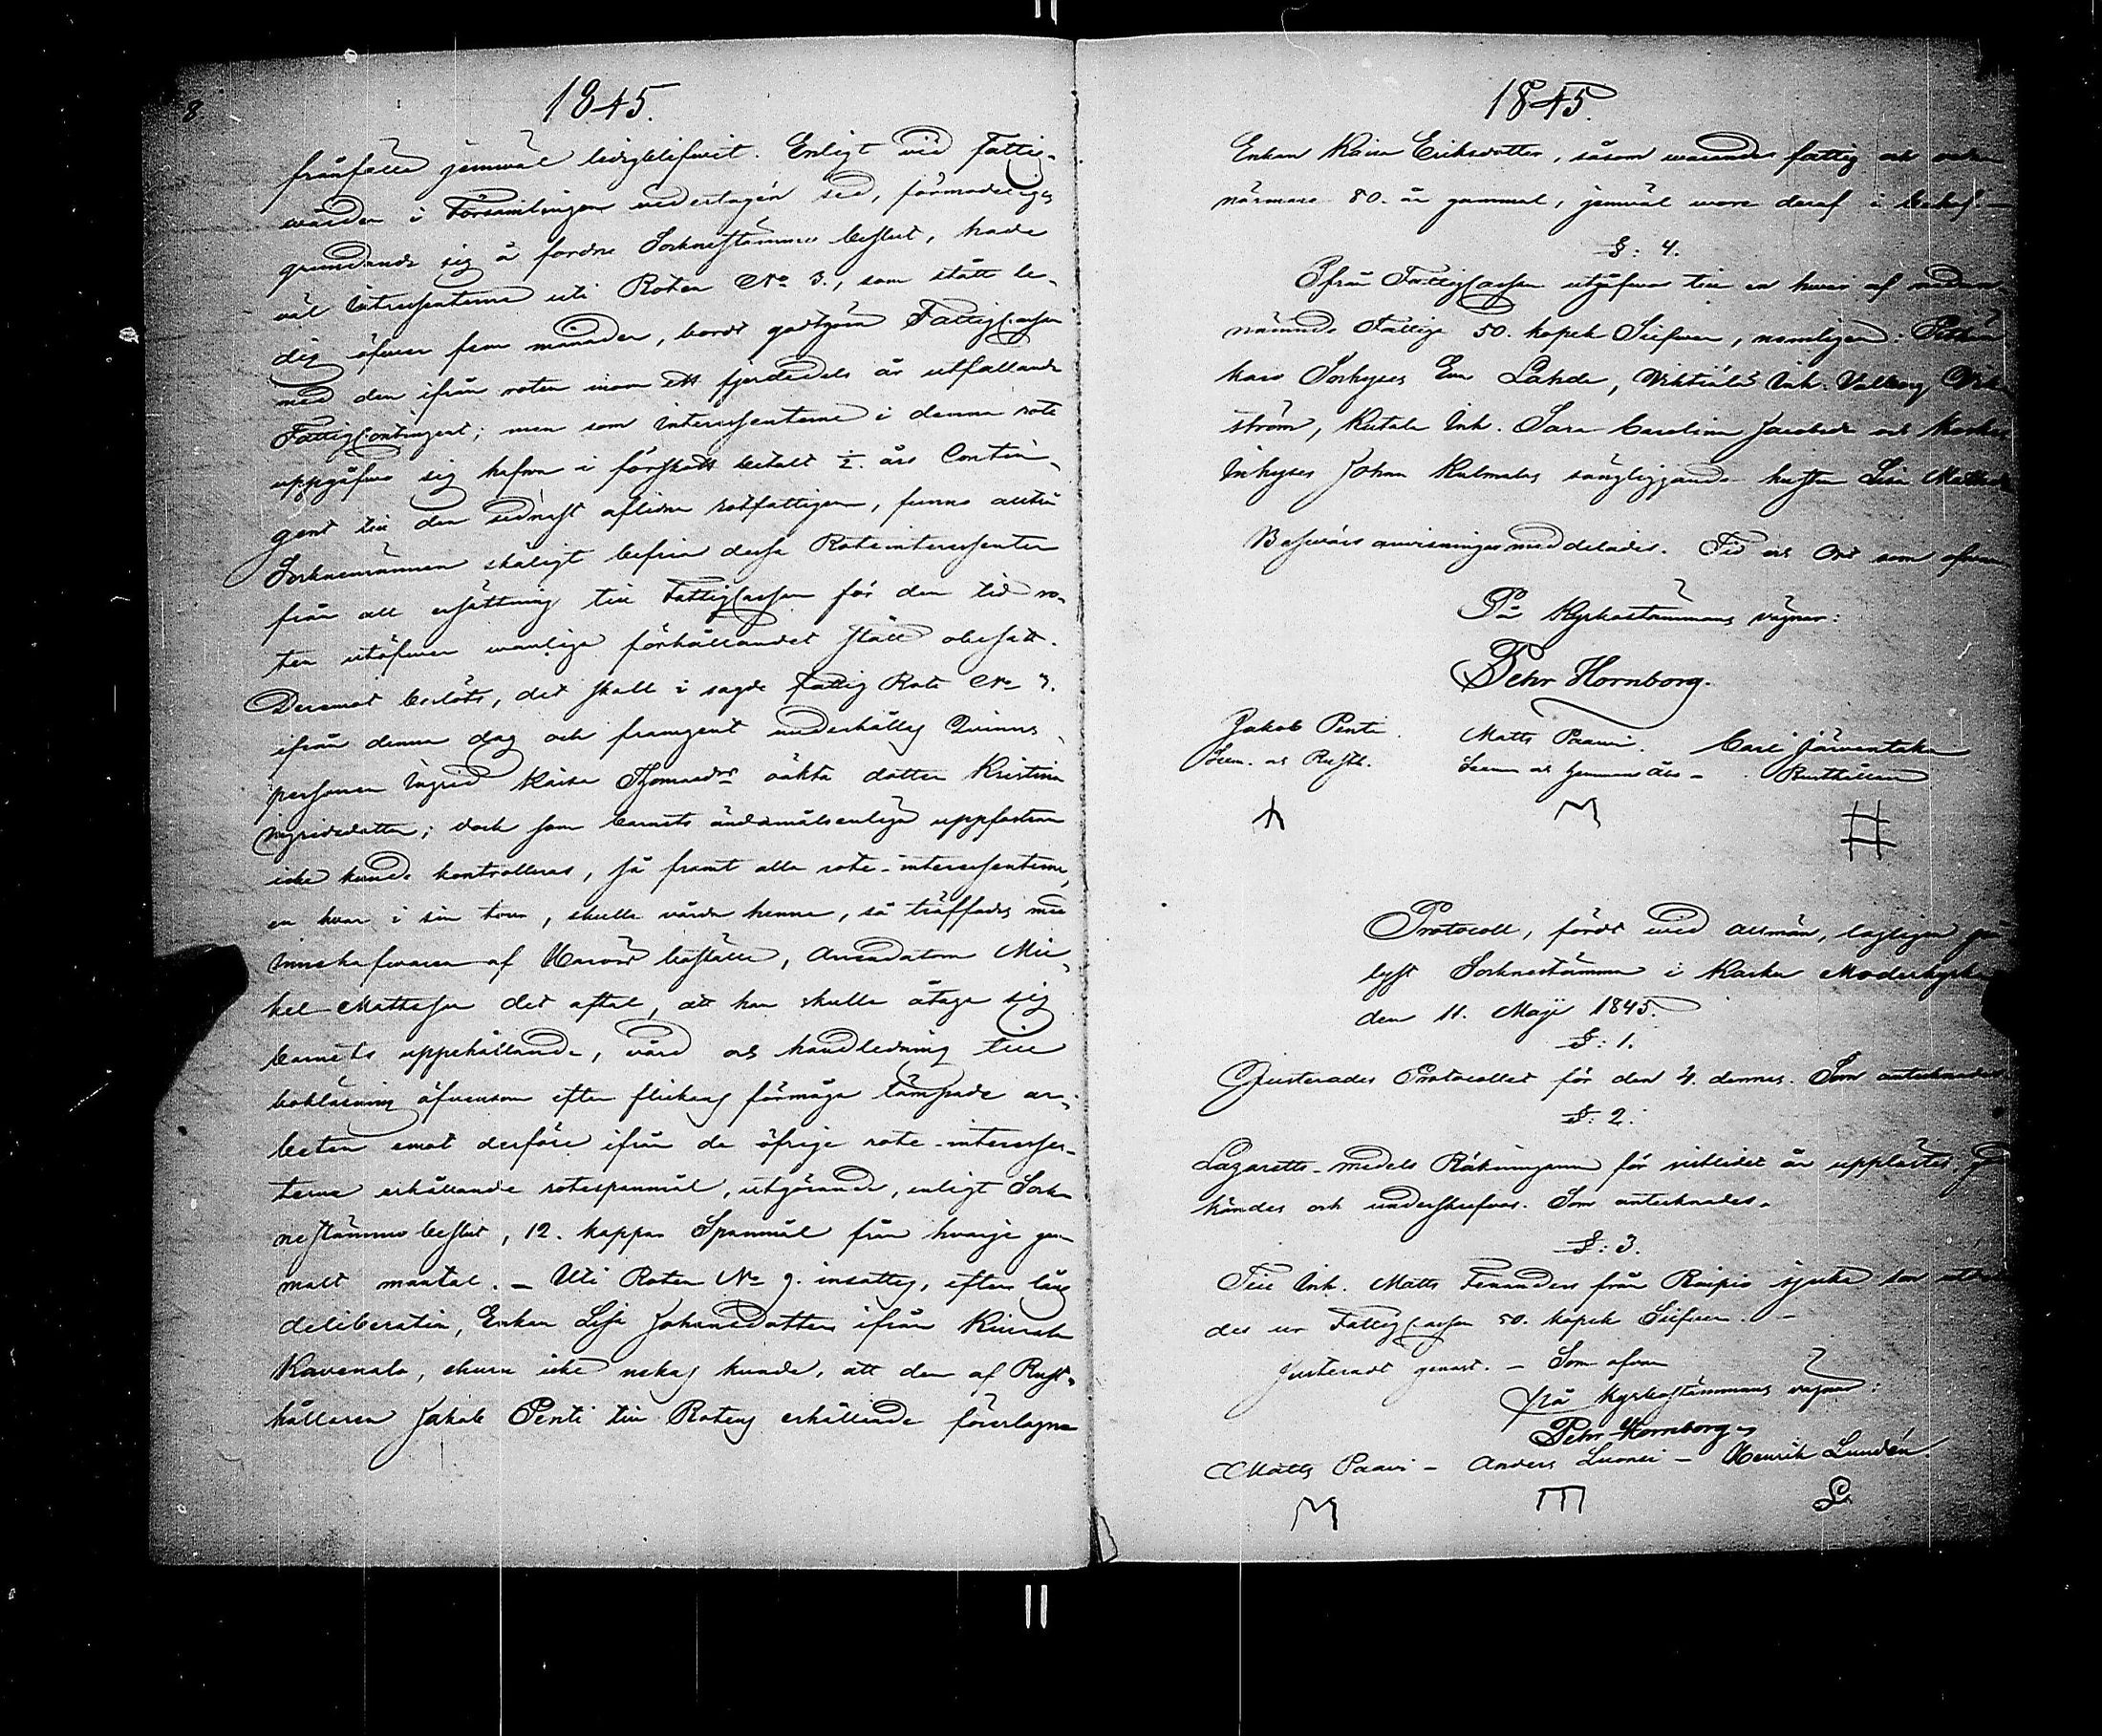 8
1845.
frånfälle jemväl ledigblifvit. Enligt vid Fattig-
vården i Församlingen vedertagen sed, förmodeligen
grundande sig å fordne Sockneståmmo beslut, hade
väl Intressenterne uti Roten No 3., som stått le-
dig öfver fem månader, bordt godtgöra FattigCassan
med den ifrån roten inom ett fjerdedels år utfallande
FattigContingent; men som interessenterne i denna rote
uppgåfvo sig hafva i förskott betalt ½ års Contin-
gent till den sednast aflidne rotfattigen, funno alltså
Socknemännen skäligt befria desse Roteinteressenter
från all ersättning till FattigCassan för den tid ro-
ten utöfver vanliga förhållandet stått obesatt.
Deremot beslöts, det skall i sagde Fattig Rote No 3.
ifrån denna dag och framgent underhållas Qvinns-
personen Ingrid Kaisa Thomasdrs oäkta dotter Kristina
Ingridsdotter; dock som barnets ändamålsenliga uppfostran
icke kunde kontrolleras, så framt alla rote-interessenterne,
en hvar i sin tour, skulle vårda henne, så träffades med
Innehafvaren af boställe, Arrendatorn Mic-
kel Mattsson det aftal, att han skulle åtaga sig
barnets uppehållande, vård och handledning till
bokläsning äfvensom efter flickans förmåga lämpade ar-
beten emot derföre ifrån de öfrige rote-interessen-
terne erhållande rotespannmål, utgörande, enligt Sock-
nestämmo beslut, 12. kappar Spannmål från hvarje gam-
malt mantal. – Uti Roten No 9. insattes, efter lång
deliberation, Enkan Lisa Johansdotter ifrån
, ehuru icke nekas kunde, att den af Rust-
hållaren Jakob Penti till Rotens erhållande föreslagne
1845.
Enkan Kaisa Eriksdotter, såsom varande fattig och redan
närmare 80. år gammal, jemväl vore deraf i behof –
§: 4.
Ifrån FattigCassan utgifvas till en hvar af nedan-
nämnde Fattige 50. kopek Silfver, nemligen:
Sockyses Lahde, Inh. Valborg Wik-
ström, Kutala Inh. Sara Carolina Jacobsdr och
Inhyses Johan Kulmalas sängliggande hustru Lisa Mattsdr
Besvärs anvisningar meddelades. Tid och Ort som ofvan
På Kyrkostämmans vägnar:
Pehr Hornborg.
Jakob Penti. Matts Paavi. Carl Järventaka
och Rusth. och Rusthållare
Protocoll, fördt vid allmän, lagligen på-
lyst Sockneståmma i Moderkyrka
den 11. Maji 1845.
§: 1.
Justerades Protocollet för den 4. dennes. Som antecknades
§: 2.
Lazaretts-medels Räkningarne för sistlidet år upplästes, god-
kändes och underskrefvos. Som antecknades.
§: 3.
Till Inh. Matts från Raipio sjuka son utbetal-
des ur FattigCassan 50. kopek Silfver. –
Justeradt genast. – Som ofvan
På Kyrkostämmans vägnar:
Pehr Hornborg
Matts Paavi – Anders – Henrik Lundén